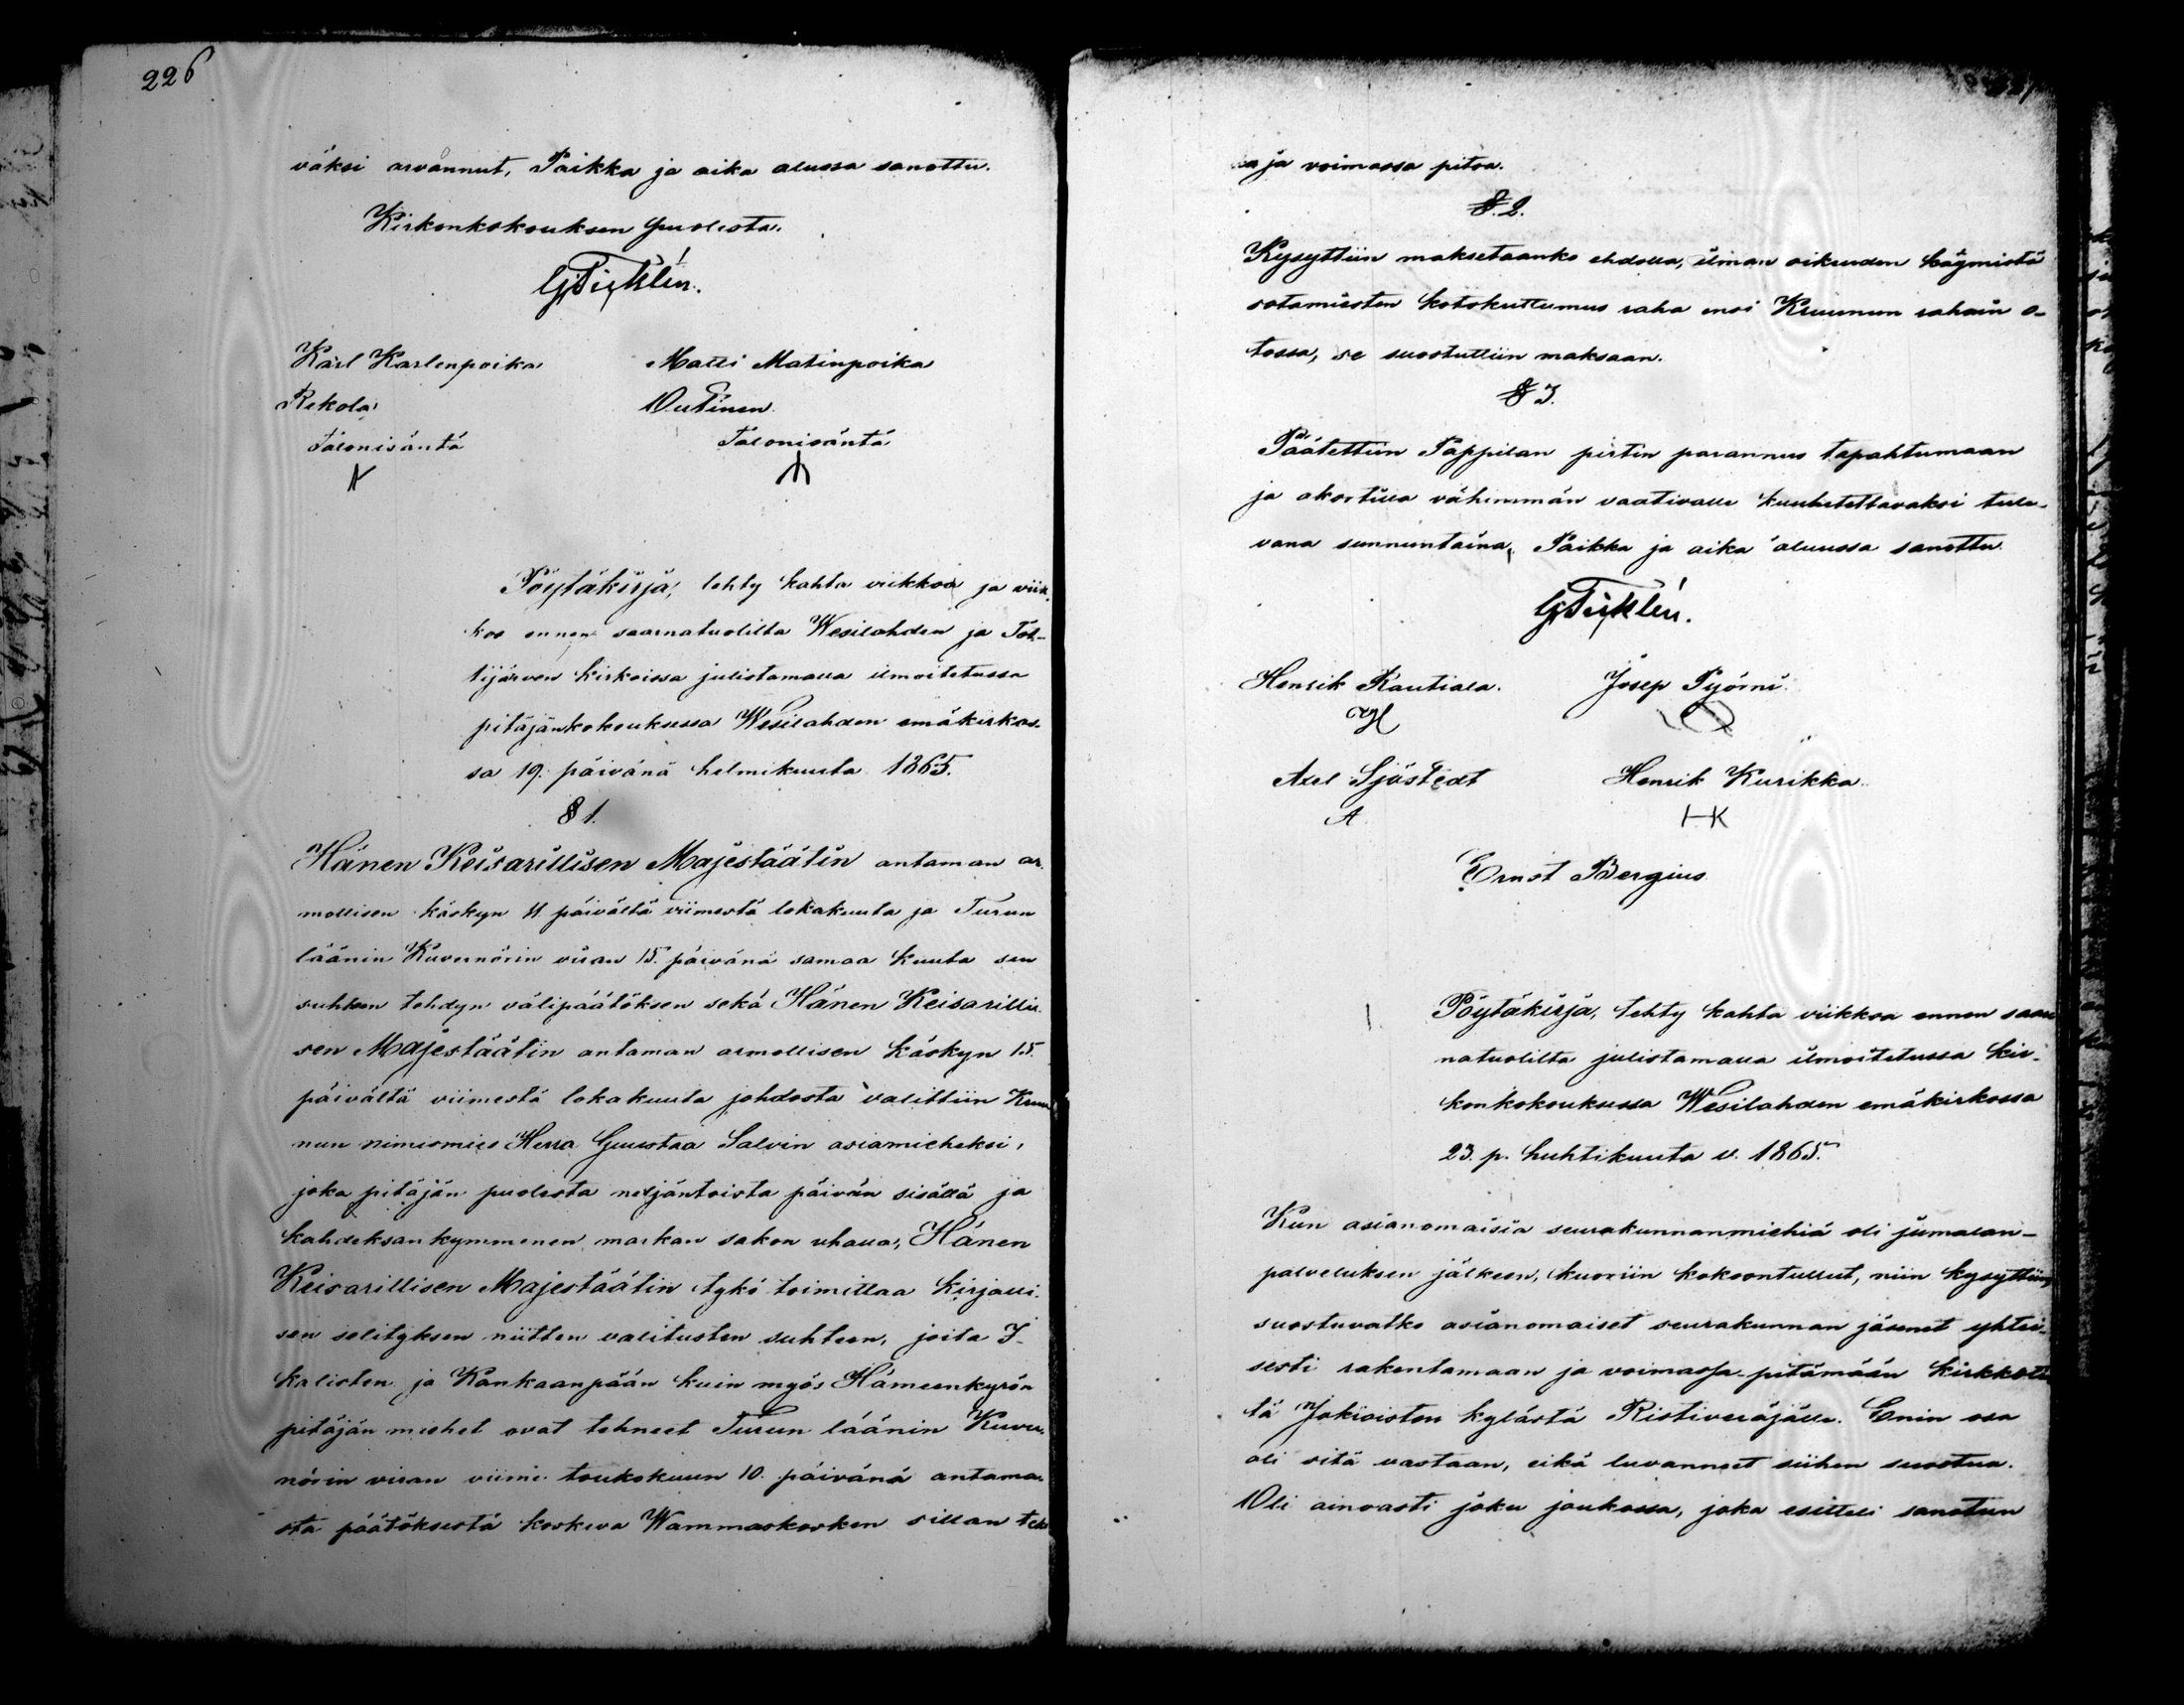 226
väksi arvannut, Paikka ja aika alussa sanottu.
Kirkonkokouksen puolesta.
Karl Karlenpoika
Matti Matinpoika
Rekola
Outinen
Talonisäntä
Talonisäntä
Pöytäkirja, tehty kahta viikkoa ja viik-
koa ennen saarnatuolilta Wesilahden ja Tot-
tijärven kirkoissa julistamalla ilmoitetussa
pitäjänkokouksessa Wesilahden emäkirkos-
sa 19. päivänä helmikuuta 1865.
§ 1.
Hänen Keisarillisen Majestäätin antaman ar-
mollisen käskyn 11 päivältä viimestä lokakuuta ja Turun
läänin Kuvernörin viran 15. päivänä samaa kuuta sen
suhteen tehdyn välipäätöksen sekä Hänen Keisarilli-
sen Majestäätin antaman armollisen käskyn 15.
päivältä viimestä lokakuuta johdosta valittiin Kruu
nun nimismies Herra Guustaa Salvin asiamieheksi,
joka pitäjän puolesta neljäntoista päivän sisällä ja
kahdeksankymmenen markan sakon uhalla, Hänen
Keisarillisen Majestäätin tykö toimittaa kirjalli-
sen selityksen niitten valitusten suhteen, joita I-
kalisten ja Kankaanpään kuin myös Hämeenkyrön
pitäjän miehet ovat tehneet Turun läänin Kuver-
nörin viran viime toukokuun 10. päivänä antama-
sta päätöksestä koskeva Wammaskosken sillan teko
a ja voimassa pitoa.
§. 2.
Kysyttiin maksetaanko ehdolla, ilman oikeuden käymistä
sotamiesten kotokutsumus raha ensi Kruunun rahain o-
tossa, se suostuttiin maksaan.
§ 3.
Päätettiin Pappilan pirtin parannus tapahtumaan
ja akortilla vähimmän vaativalle kuulutettavaksi tule-
vana sunnuntaina, Paikka ja aika aluussa sanottu.
Henrik Rautiala.
Josep Pyörni.
H
Axel Sjöstedt
Henrik Kurikka.
A
HK
Ernst Bergius
Pöytäkirja, tehty kahta viikkoa ennen saar
natuolilta julistamalla ilmoitetussa kir-
konkokouksessa Wesilahden emäkirkossa
23. p. huhtikuuta v. 1865.
Kun asianomaisia seurakunnanmiehiä oli jumalan-
palveluksen jälkeen, kuoriin kokoontullut, niin kysyttiin,
suostuvatko asianomaiset seurakunnan jäsenet yhtei-
sesti rakentamaan ja voimassa-pitämään kirkkotie
tä Jokioisten kylästä Ristiveräjälle. Enin osa
oli sitä vastaan, eikä luvanneet siihen suostua.
Oli ainoasti joku joukossa, joka esitteli sanotun